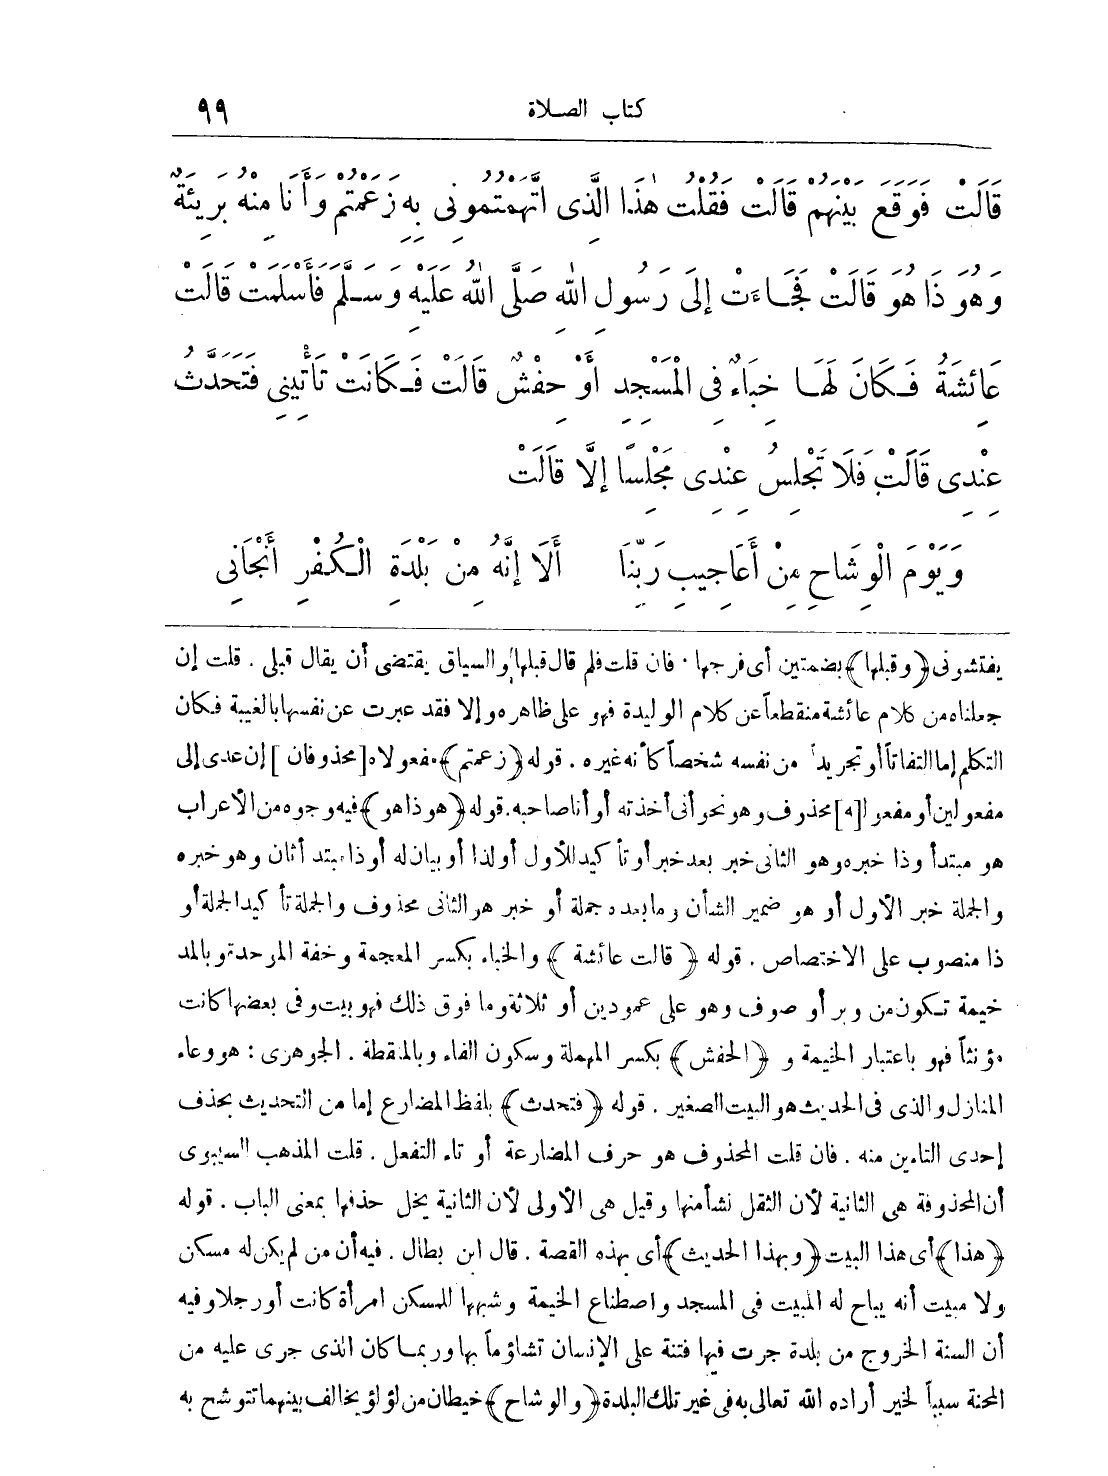 كتاب الصلاة ٩٩
قَالَتْ فَوَقَعَ بَيْنَهُمْ قَالَتْ فَقُلْتُ هٰذَا الَّذِى اتَّهَمْتُمُونِى بِهِ زَعَمْتُمْ وَأَنَا مِنْهُ بَرِيئَةٌ
وَهُوَ ذَا هُوَ قَالَتْ فَجَاءَتْ إِلَى رَسُولِ اللّٰهِ صَلَّى اللّٰهُ عَلَيْهِ وَسَلَّمَ فَأَسْلَمَتْ قَالَتْ
عَائِشَةُ فَكَانَ لَهَا خِبَاءٌ فِى الْمَسْجِدِ أَوْ حِفْشٌ قَالَتْ فَكَانَتْ تَأْتِينِى فَتَحَدَّثُ
عِنْدِى قَالَتْ فَلَا تَجْلِسُ عِنْدِى مَجْلِسًا إِلَّا قَالَتْ
وَيَوْمَ الْوِشَاحِ مِنْ أَعَاجِيبِ رَبِّنَا أَلَا إِنَّهُ مِنْ بَلْدَةِ الْكُفْرِ أَنْجَانِى
يفتشونى ﴿وقبلها﴾ بضمتين أى فرجها . فان قلت فلم قال قبلها والسياق يقتضى أن يقال قبلى . قلت إن
جعلناه من كلام عائشة منقطعاً عن كلام الوليدة فهو على ظاهره وإلا فقد عبرت عن نفسها بالغيبة فكان
التكلم إما التفاتاً أو تجريداً من نفسه شخصاً كأنه غيره . قوله ﴿زعمتم﴾ مفعولاه [محذوفان] إن عدى إلى
مفعولين أو مفعوله[ه] محذوف وهو نحو أنى أخذته أو أنا صاحبه. قوله ﴿هو ذا هو﴾ فيه وجوه من الأعراب
هو مبتدأ وذا خبره وهو الثانى خبر بعد خبر أو تأكيد للأول أو لذا أو بيان له أو ذا مبتدأ ثان وهو خبره
والجملة خبر الأول أو هو ضمير الشأن وما بعده جملة أو خبر هو الثانى محذوف والجملة تأكيد الجملة أو
ذا منصوب على الاختصاص . قوله ﴿قالت عائشة﴾ والخباء بكسر المعجمة وخفة الموحدة وبالمد
خيمة تكون من وبر أو صوف وهو على عمودين أو ثلاثة وما فوق ذلك فهو بيت وفى بعضها كانت
مؤنثاً فهو باعتبار الخيمة و﴿الحفش﴾ بكسر المهملة وسكون الفاء وبالمنقطة . الجوهرى : هو وعاء
المنازل والذى فى الحديث هو البيت الصغير . قوله ﴿فتحدث﴾ بلفظ المضارع إما من التحديث بحذف
إحدى التاءين منه . فان قلت المحذوف هو حرف المضارعة أو تاء التفعل . قلت المذهب السيبوى
أن المحذوفة هى الثانية لأن الثقل نشأ منها وقيل هى الأولى لأن الثانية يخل حذفها بمعنى الباب . قوله
﴿هذا﴾ أى هذا البيت ﴿وبهذا الحديث﴾ أى بهذه القصة . قال ابن بطال . فيه أن من لم يكن له مسكن
ولا مبيت أنه يباح له المبيت فى المسجد واصطناع الخيمة وشبهها للمسكن امرأة كانت أو رجلا وفيه
أن السنة الخروج من بلدة جرت فيها فتنة على الإنسان تشاؤماً بها وربما كان الذى جرى عليه من
المحنة سبباً لخير أراده الله تعالى به فى غير تلك البلدة ﴿والوشاح﴾ خيطان من لؤلؤ يخالف بينهما تتوشح به